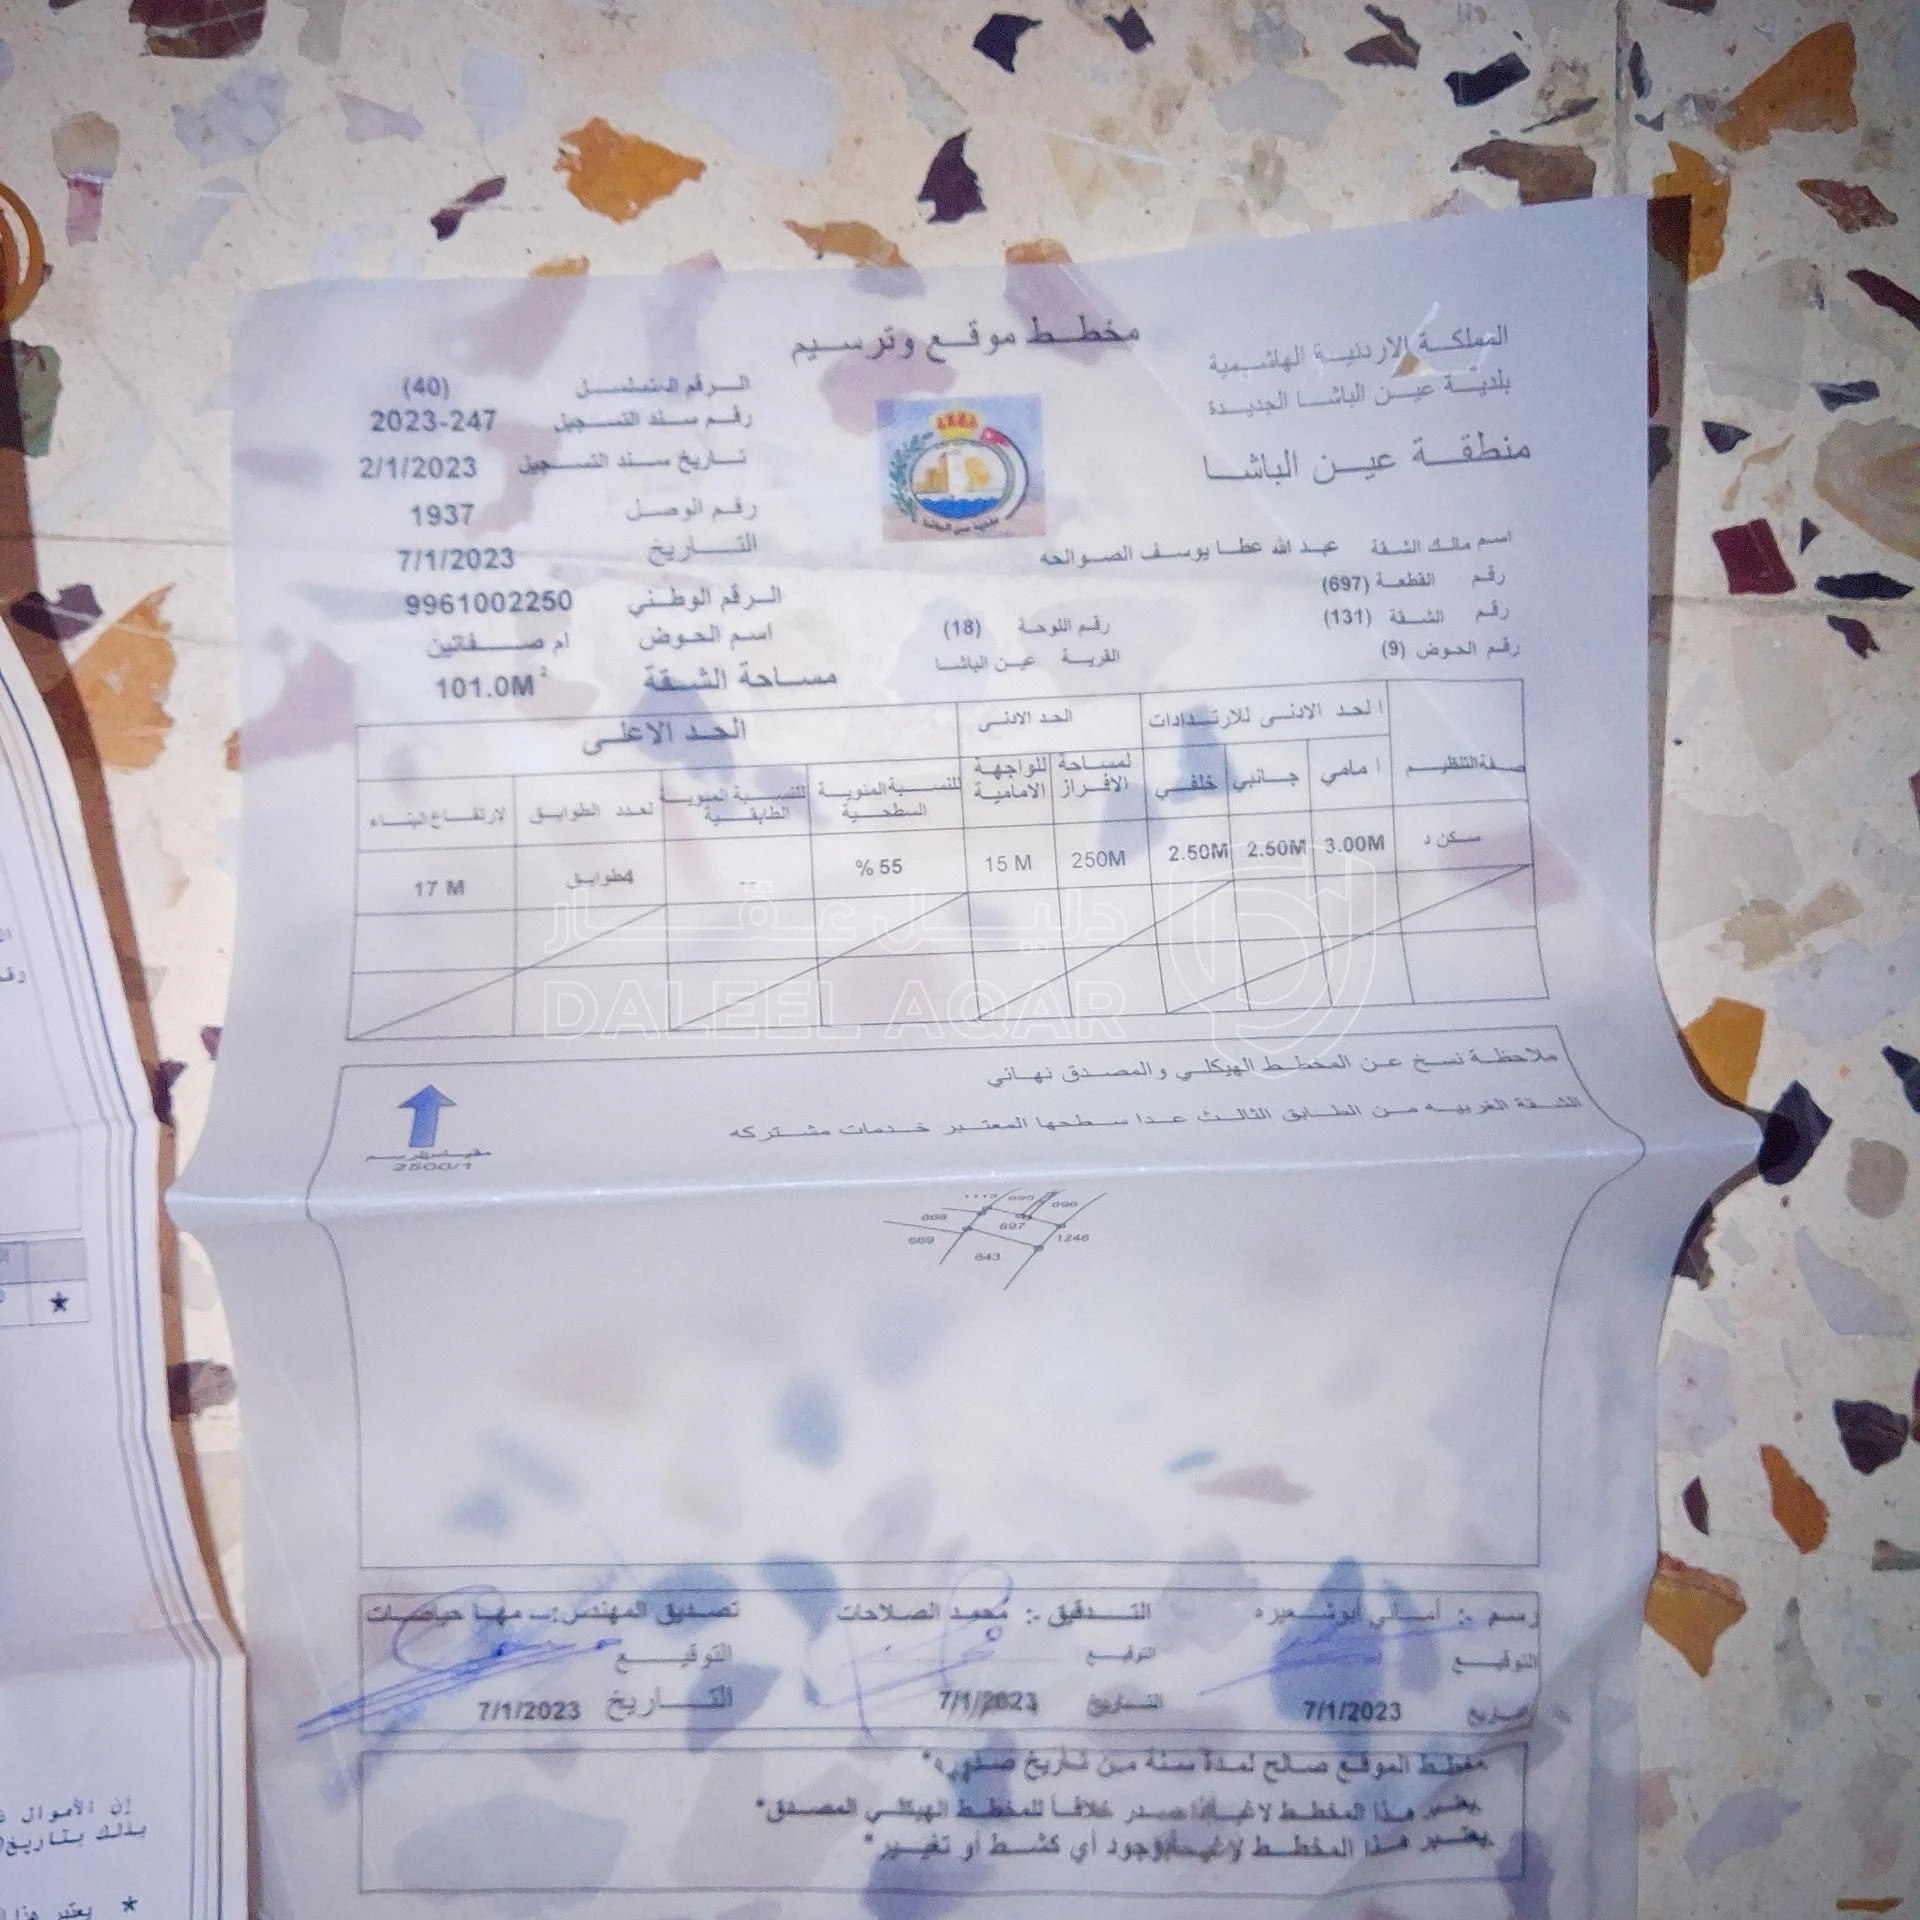 مخطط موقع وترسيم
المملكة الاردنية الهاشمية
بلدية عين الباشا الجديدة
منطقة عين الباشا
الرقم المتسلسل (40)
رقم سند التسجيل 2023-247
تاريخ سند التسجيل 2/1/2023
رقم الوصل 1937
التاريخ 7/1/2023
الرقم الوطني 9961002250
اسم الحوض ام صفاتين
مساحة الشقة 101.0M²
اسم مالك الشقة عبد الله عطا يوسف الصوالحه
رقم القطعة (697)
رقم الشقة (131) رقم اللوحة (18)
رقم الحوض (9) القرية عين الباشا
صفة التنظيم الحد الادنى للارتدادات الحد الادنى الحد الاعلى
امامي جانبي خلفي لمساحة الافراز للواجهة الامامية للنسبة المئوية السطحية للنسبة المئوية الطابقية لعدد الطوابق لارتفاع البناء
سكن د 3.00M 2.50M 2.50M 250M 15 M % 55 -- 4طوابق 17 M
دليل عقار
DALEEL AQAR
ملاحظة نسخ عن المخطط الهيكلي والمصدق نهائي
الشقة الغربيه من الطابق الثالث عدا سطحها المعتبر خدمات مشتركه
2500/1
695 696
697 1246
643
رسم :- أماني ابوشعيره التدقيق :- محمد الصلاحات تصديق المهندس :- مها حياصات
التوقيع التوقيع التوقيع
7/1/2023 التاريخ 7/1/2023 التاريخ 7/1/2023
مخطط الموقع صالح لمدة سنة من تاريخ صدوره*
يعتبر هذا المخطط لاغيا اذا صدر خلافاً للمخطط الهيكلي المصدق*
يعتبر هذا المخطط لاغيا بوجود أي كشط أو تغيير*
إن الأموال
بذلك بتاريخ
* يعتبر هذا